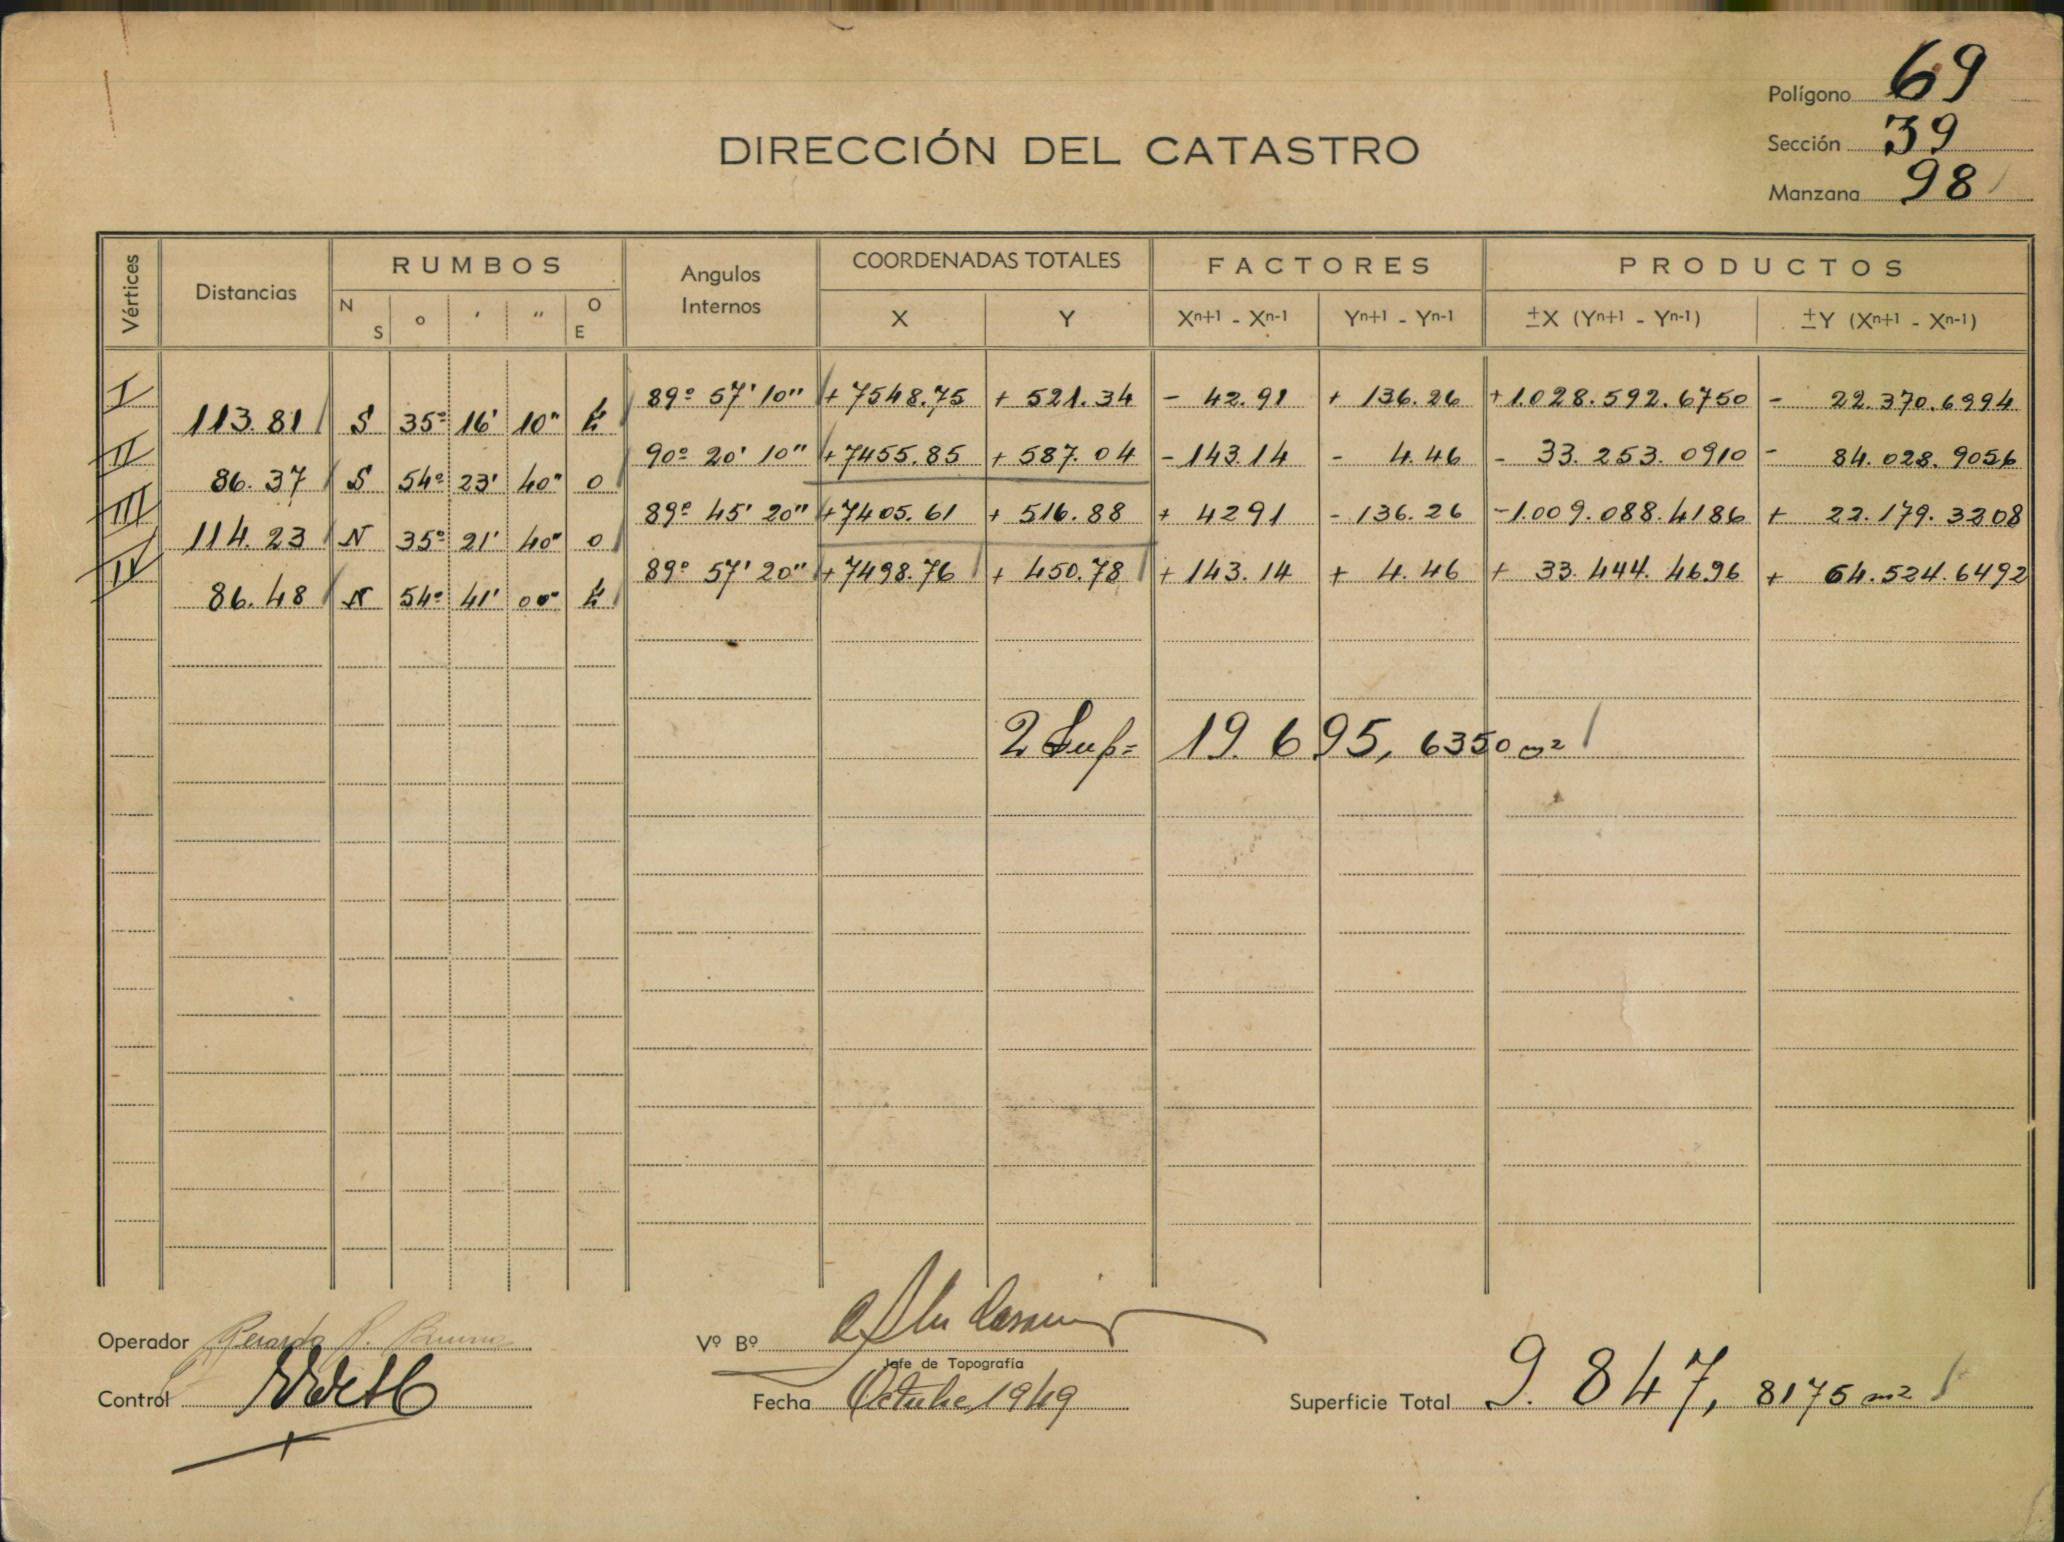 Polígono 69
DIRECCIÓN DEL CATASTRO
Sección 39
Manzana 98
Vértices Distancias RUMBOS Angulos Internos COORDENADAS TOTALES FACTORES PRODUCTOS
N S o ' " O E X Y Xn+1 - Xn-1 Yn+1 - Yn-1 ±X (Yn+1 - Yn-1) ±Y (Xn+1 - Xn-1)
I 89º 57' 10" + 7548.75 + 521.34 - 42.91 + 136.26 + 1.028.592.6750 - 22.370.6994
113.81 S 35º 16' 10" E
II 90º 20' 10" + 7455.85 + 587.04 - 143.14 - 4.46 - 33.253.0910 - 84.028.9056
86.37 S 54º 23' 40" O
III 89º 45' 20" + 7405.61 + 516.88 + 4291 - 136.26 - 1.009.088.4186 + 22.179.3208
114.23 N 35º 21' 40" O
IV 89º 57' 20" + 7498.76 + 450.78 + 143.14 + 4.46 + 33.444.4696 + 64.524.6492
86.48 N 54º 41' 00" E
2 Sup= 19.695,6350 m2
Operador Gerardo
Vº Bº
Jefe de Topografía
Control
Fecha Octubre 1949
Superficie Total 9.847,8175 m2